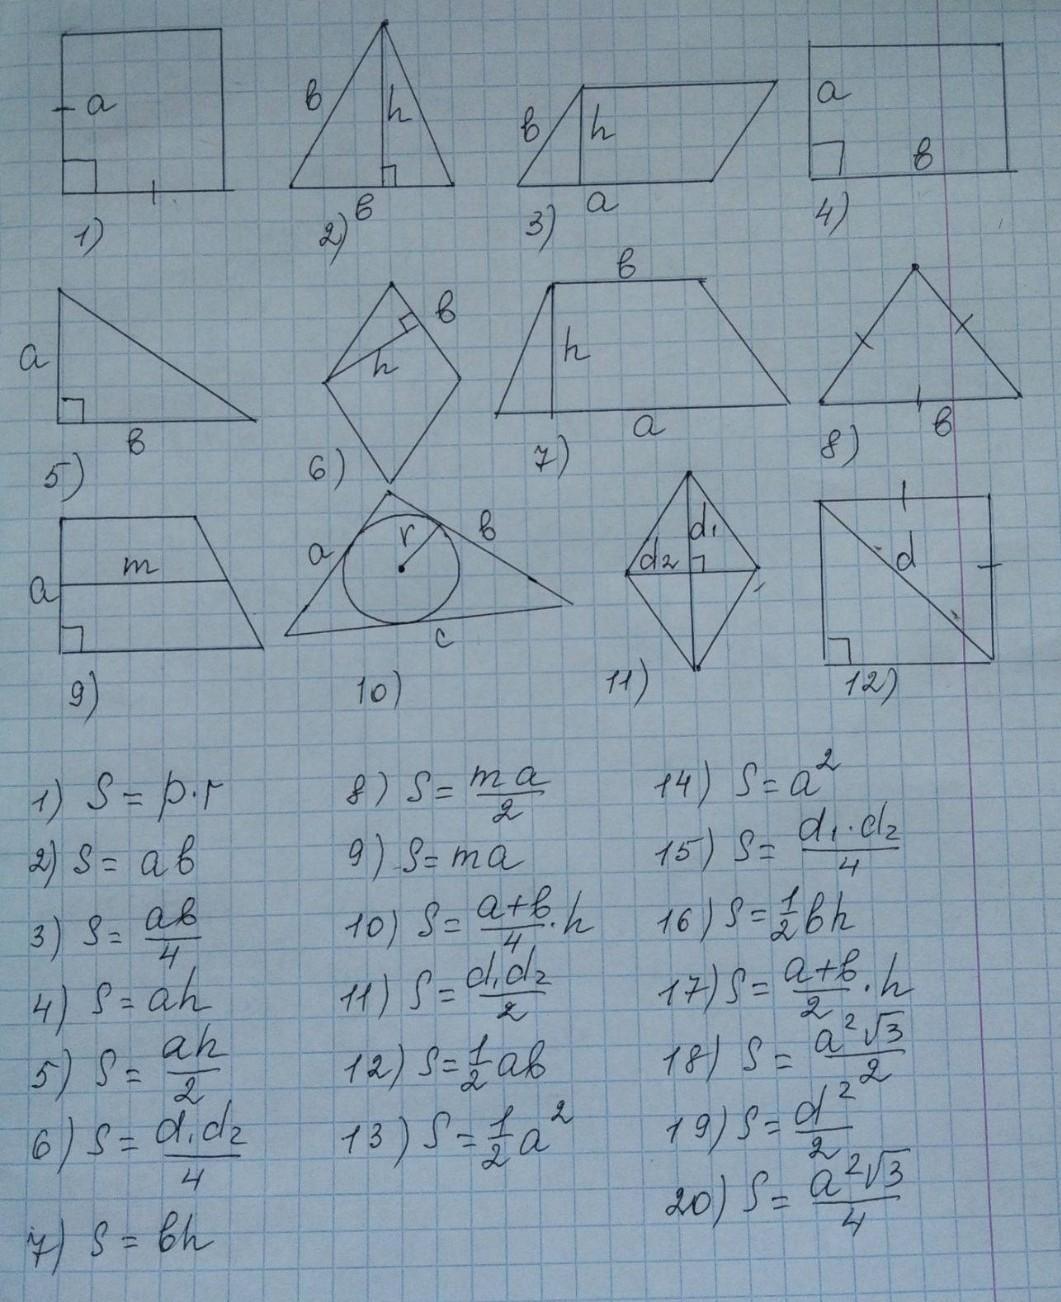 a
в
h
в
в
h
a
a
в
1)
2)
3)
4)
a
в
в
h
в
h
a
в
5)
6)
7)
8)
m
a
a
r
в
c
d₁
d₂
d
9)
10)
11)
12)
1) S = p·r
2) S = aв
3) S = aв/4
4) S = ah
5) S = ah/2
6) S = d₁d₂/4
7) S = вh
8) S = ma/2
9) S = ma
10) S = a+в/4 · h
11) S = d₁d₂/2
12) S = 1/2 aв
13) S = 1/2 a²
14) S = a²
15) S = d₁·d₂/4
16) S = 1/2 вh
17) S = a+в/2 · h
18) S = a²√3/2
19) S = d²/2
20) S = a²√3/4